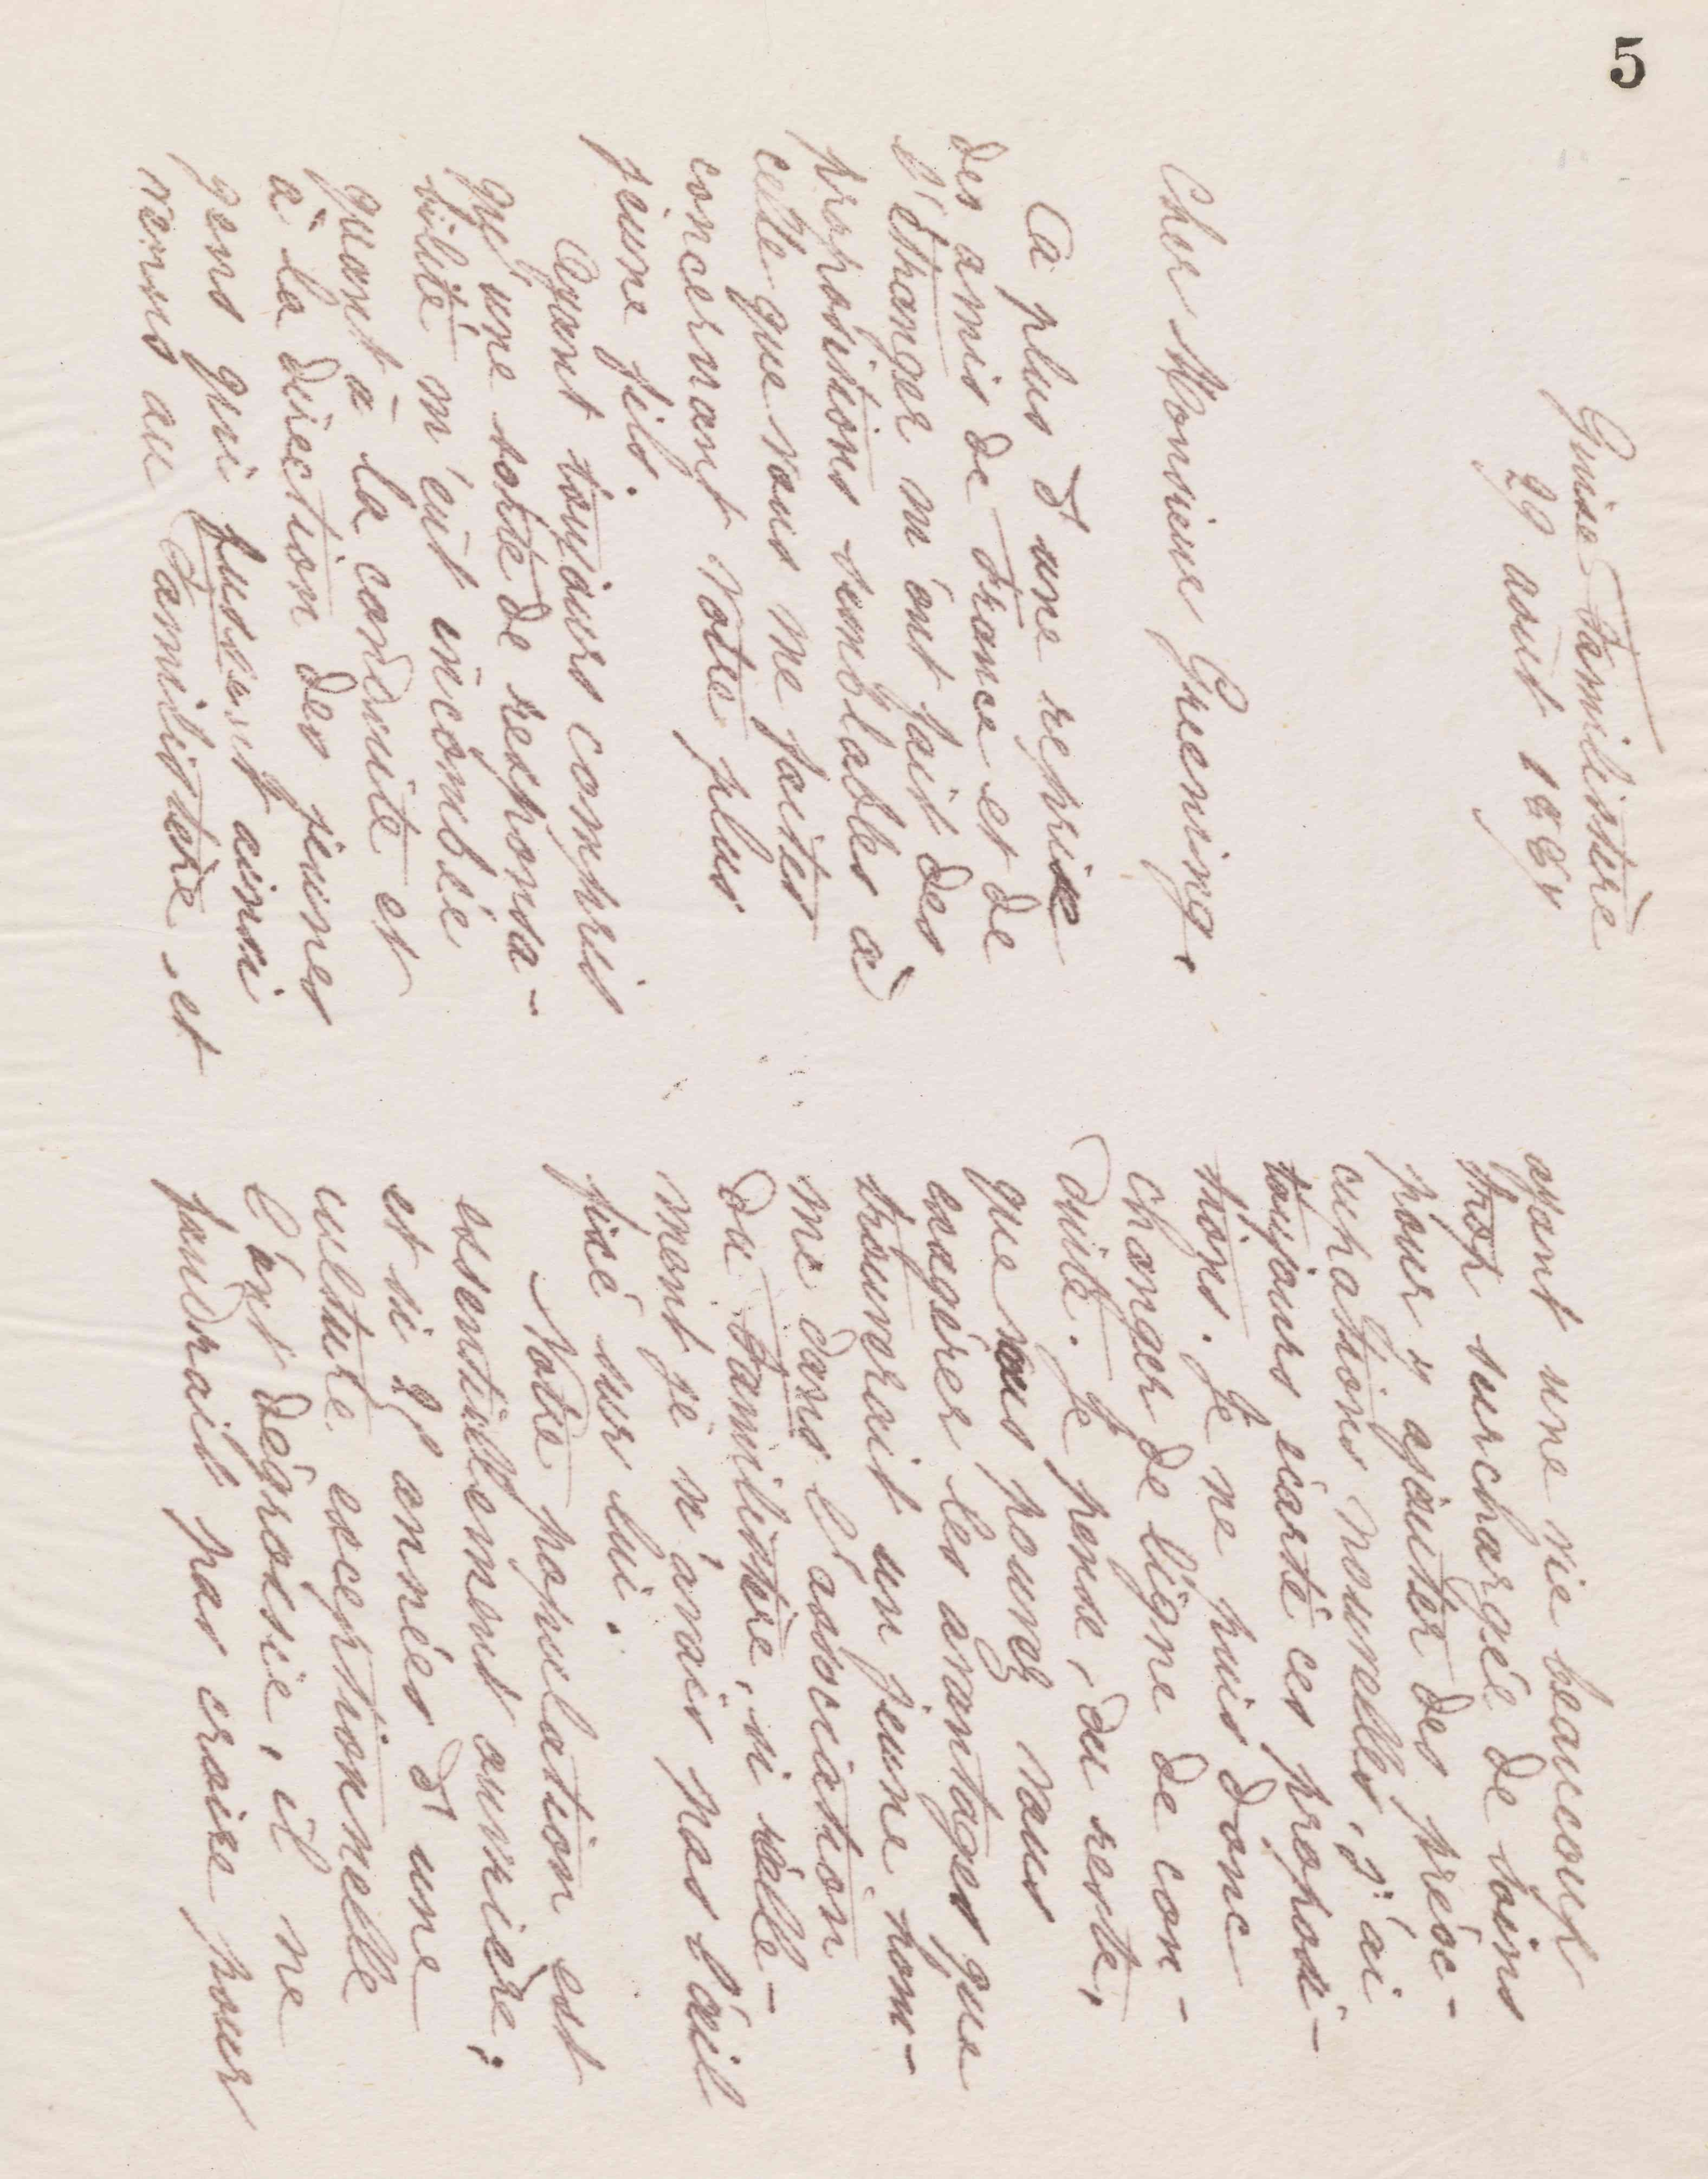 5
Guise Familistère
29 août 1884
Cher Monsieur Greening,
A plus d'une reprise
des amis de France et de
l'étranger m'ont fait des
propositions semblables à
celle que vous me faites
concernant votre plus
jeune fils.
Ayant toujours compris
qu'une sorte de responsa-
bilité m'eut incombée
quant à la conduite et
à la direction des jeunes
gens qui fussent ainsi
venus au Familistère, et
ayant une vie beaucoup
trop surchargée de soins
pour y ajouter des préoc-
cupations nouvelles, j'ai
toujours écarté ces proposi-
tions. Je ne puis donc
changer de ligne de con-
duite. Je pense, du reste,
que vous pouvez vous
exagérer les avantages que
trouverait un jeune hom-
me dans l'association
du Familistère, si réelle-
ment je n'avais pas l'œil
fixé sur lui.
Notre population est
essentiellement ouvrière;
et si 25 années d'une
culture exceptionnelle
l'ont dégrossie, il ne
faudrait pas croire pour